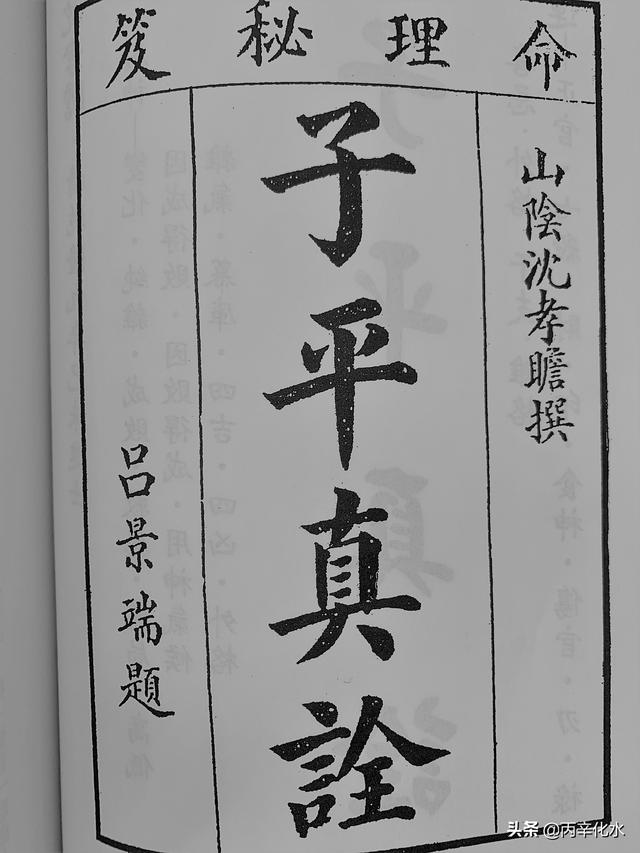 命理秘笈
山陰沈孝瞻撰
子平真詮
呂景端題
头条 @丙辛化水